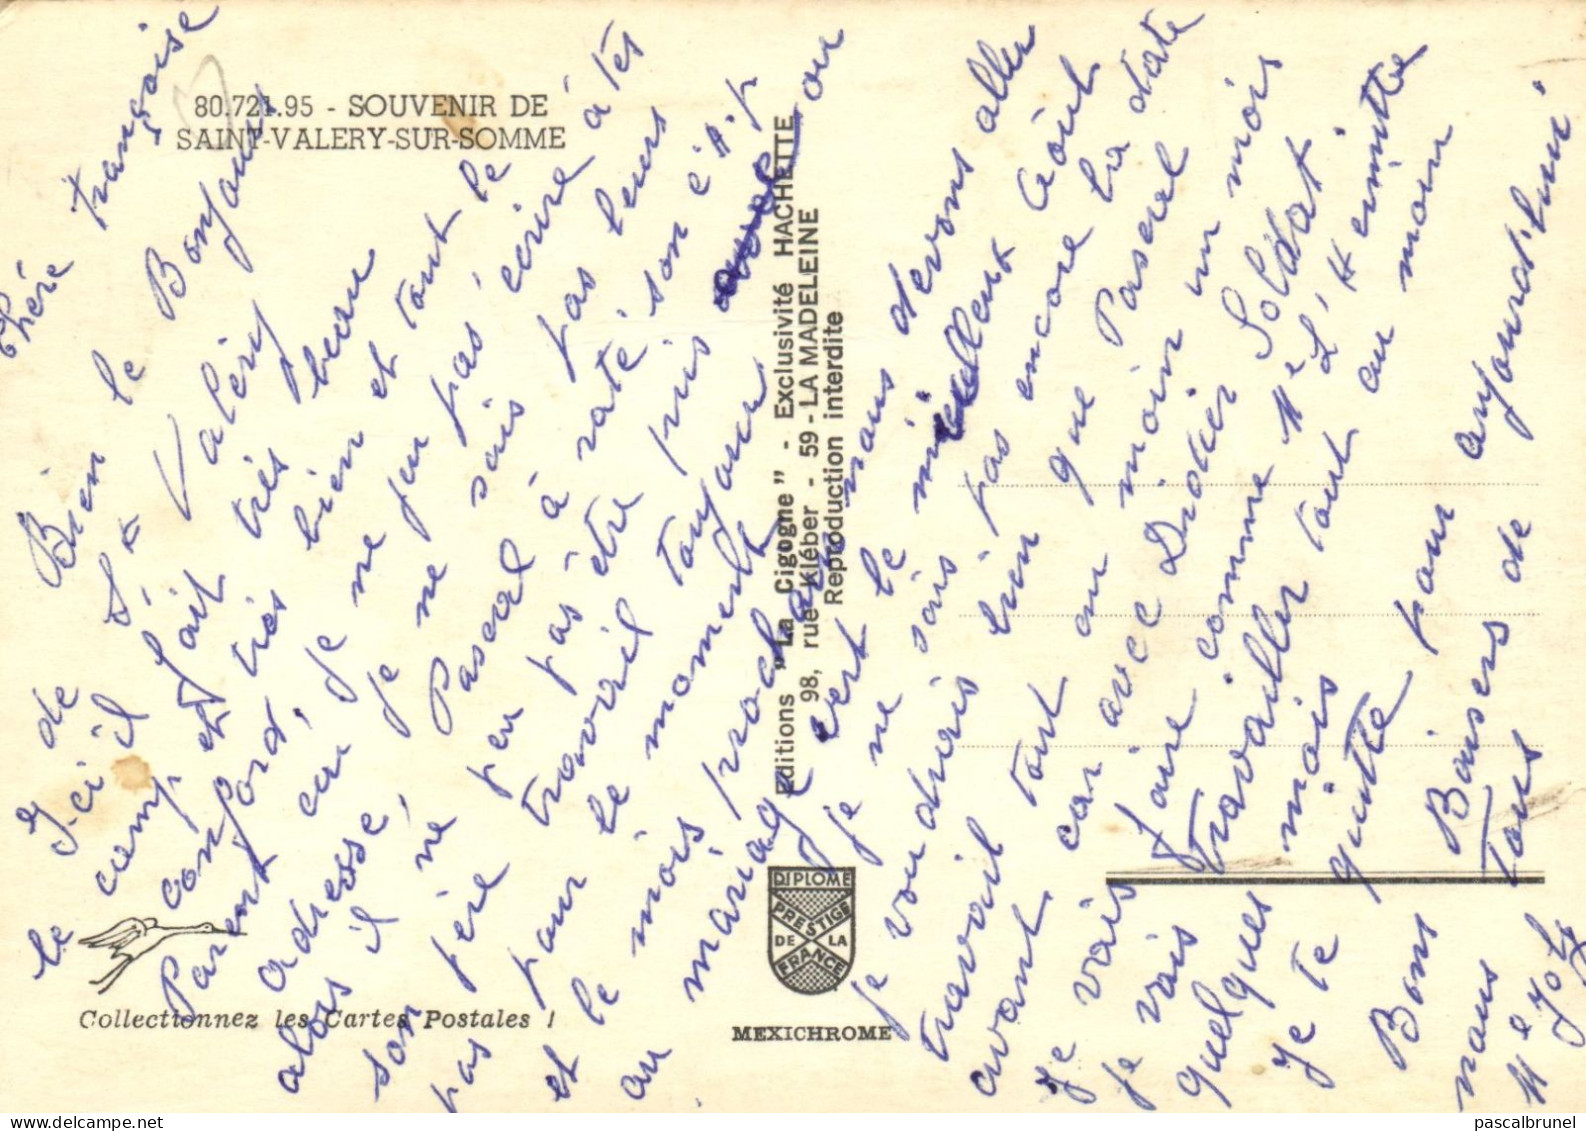 80.721.95 - SOUVENIR DE
SAINT-VALERY-SUR-SOMME
Chére Françoise
Bien le Bonjour
de St Valéry
Ici il fait très beau
le camp et très bien et tout le
conford, je ne peu pas écrire à tes
Parent car je ne sais pas leurs
adresse, Pascal à raté son C.A.P
alors il ne peu pas être pris avec ou
son père travail toujour
pas pour le moment
et le mois prochain nous devons aller
au mariage c'ert le
je ne sais pas encore la date
je voudrais bien que Pascal
travail tout au moin un mois
avant car avec Didier Soldat
Je vais faire comme Me L'Hermitte
je vais travailler tout au moin
quelques mois
Je te quitte pour aujourd'hui.
Bons Baisers de
nous Tous
Me
Editions "La Cigogne" - Exclusivité HACHETTE
98, rue Kléber - 59 - LA MADELEINE
Reproduction interdite
DIPLOME
PRESTIGE
DE LA
FRANCE
Collectionnez les Cartes Postales !
MEXICHROME
pascalbrunel